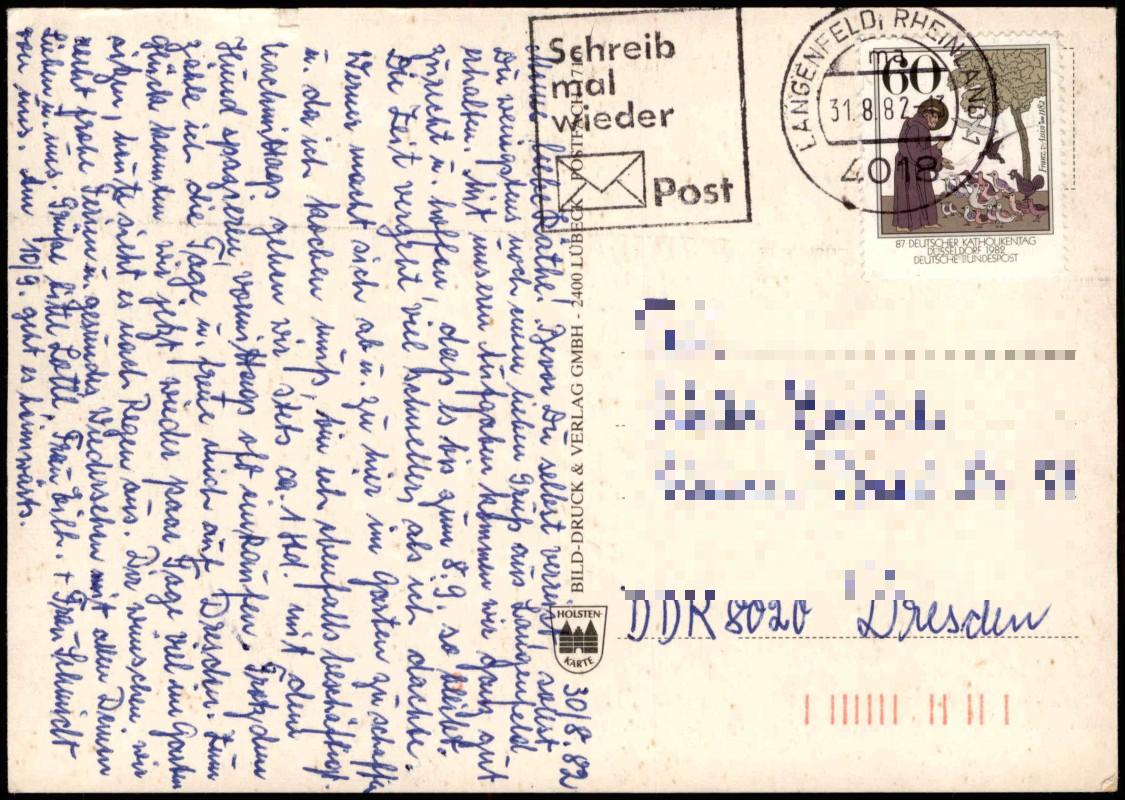 Schreib
mal
wieder
Post
LANGENFELD, RHEINLAND 1
31.8.82-
4018
60
Franz v. Assisi
87. DEUTSCHER KATHOLIKENTAG
DÜSSELDORF 1982
DEUTSCHE BUNDESPOST
30/8.82
liebe Käthe! Bevor Du selbst verreist, sollst
Du wenigstens noch einen lieben Gruß aus Langenfeld
erhalten. Mit unseren Aufgaben kommen wir ganz gut
zurecht u. hoffen, daß es bis zum 8.9. so bleibt.
Die Zeit vergeht viel schneller, als ich dachte.
Werner macht sich ab u. zu hier im Garten zu schaffen
u. da ich kochen muß, bin ich ebenfalls beschäftigt.
Nachmittags gehn wir stets ca. 1 Std. mit dem
Hund spazieren, vormittags oft einkaufen. Trotzdem
zähle ich die Tage u. freue mich auf Dresden. Zum
Glück konnten wir jetzt wieder paar Tage viel im Garten
sitzen, heute sieht es nach Regen aus. Dir wünschen wir
recht frohe Ferien u. gesundes Wiedersehn mit allen Deinen
Lieben u. uns. Grüße bitte Lotte, Frau + Frau Schmidt
von uns. Am 10/9. geht es heimwärts.
BILD-DRUCK & VERLAG GMBH - 2400 LÜBECK - POSTFACH
HOLSTEN-
KARTE
DDR 8020 Dresden